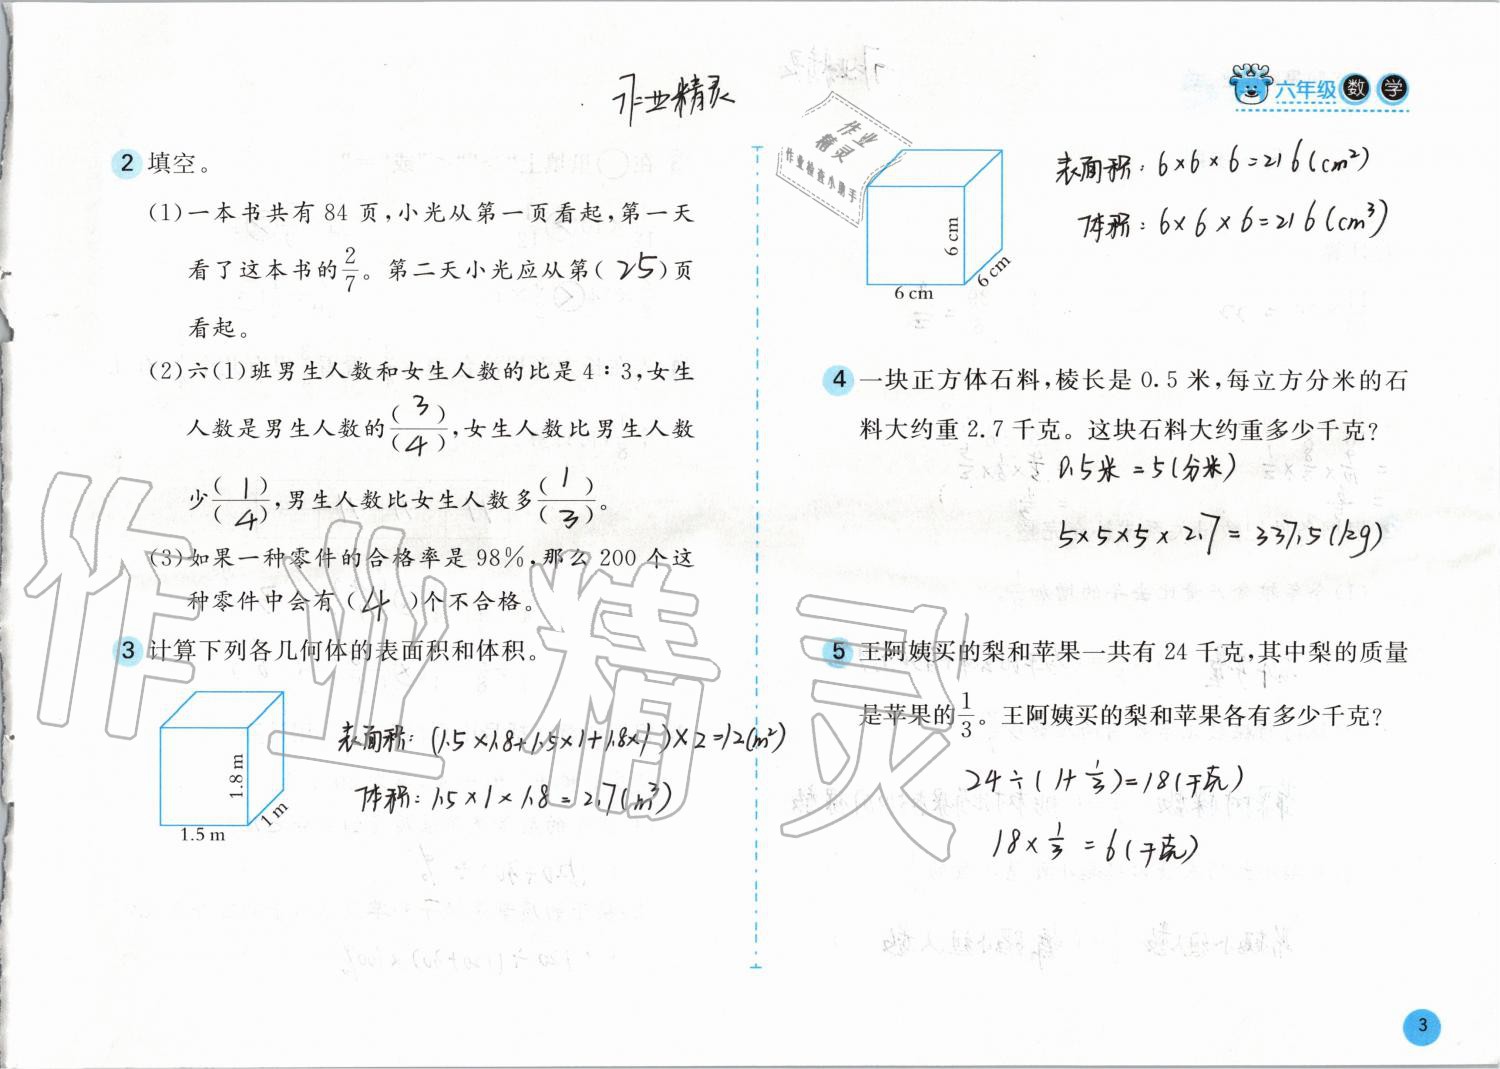 作业精灵
六年级 数学
作业
精灵
作业检查小助手
2 填空。
(1)一本书共有 84 页,小光从第一页看起,第一天
看了这本书的2/7。第二天小光应从第( 25 )页
看起。
(2)六(1)班男生人数和女生人数的比是 4∶3,女生
人数是男生人数的( 3 )/( 4 ),女生人数比男生人数
少( 1 )/( 4 ),男生人数比女生人数多( 1 )/( 3 )。
(3)如果一种零件的合格率是 98%,那么 200 个这
种零件中会有( 4 )个不合格。
3 计算下列各几何体的表面积和体积。
1.8 m
1 m
1.5 m
表面积: (1.5×1.8+1.5×1+1.8×1)×2=12(m²)
体积: 1.5×1×1.8=2.7(m³)
6 cm
6 cm
6 cm
表面积: 6×6×6=216(cm²)
体积: 6×6×6=216(cm³)
4 一块正方体石料,棱长是 0.5 米,每立方分米的石
料大约重 2.7 千克。这块石料大约重多少千克?
0.5米=5(分米)
5×5×5×2.7=337.5(kg)
5 王阿姨买的梨和苹果一共有 24 千克,其中梨的质量
是苹果的1/3。王阿姨买的梨和苹果各有多少千克?
24÷(1+1/3)=18(千克)
18×1/3=6(千克)
作业精灵
3